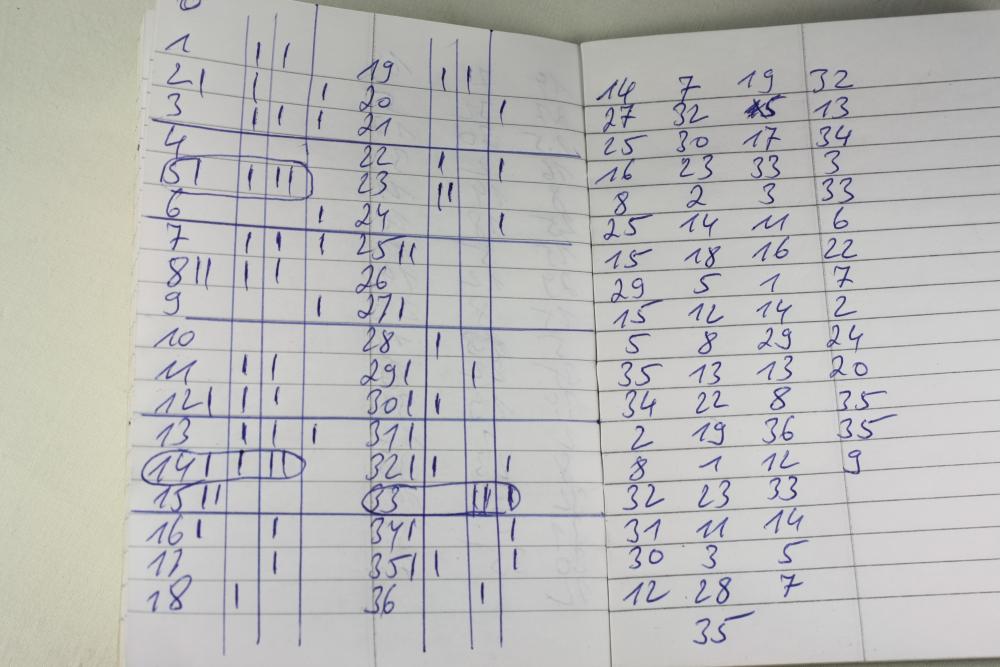 0
1 | | 19 | |
2 | | | 20 |
3 | | | 21
4 22 | |
5 | | || 23 ||
6 | 24 |
7 | | | 25 ||
8 || | | 26
9 | 27 |
10 28 |
11 | | 29 | |
12 | | | 30 | |
13 | | | 31 |
14 | | || 32 | | |
15 || 33 || |
16 | | 34 | |
17 | 35 | | |
18 | 36 |
14 7 19 32
27 32 5 13
25 30 17 34
16 23 33 3
8 2 3 33
25 14 11 6
15 18 16 22
29 5 1 7
15 12 14 2
5 8 29 24
35 13 13 20
34 22 8 35
2 19 36 35
8 1 12 9
32 23 33
31 11 14
30 3 5
12 28 7
35